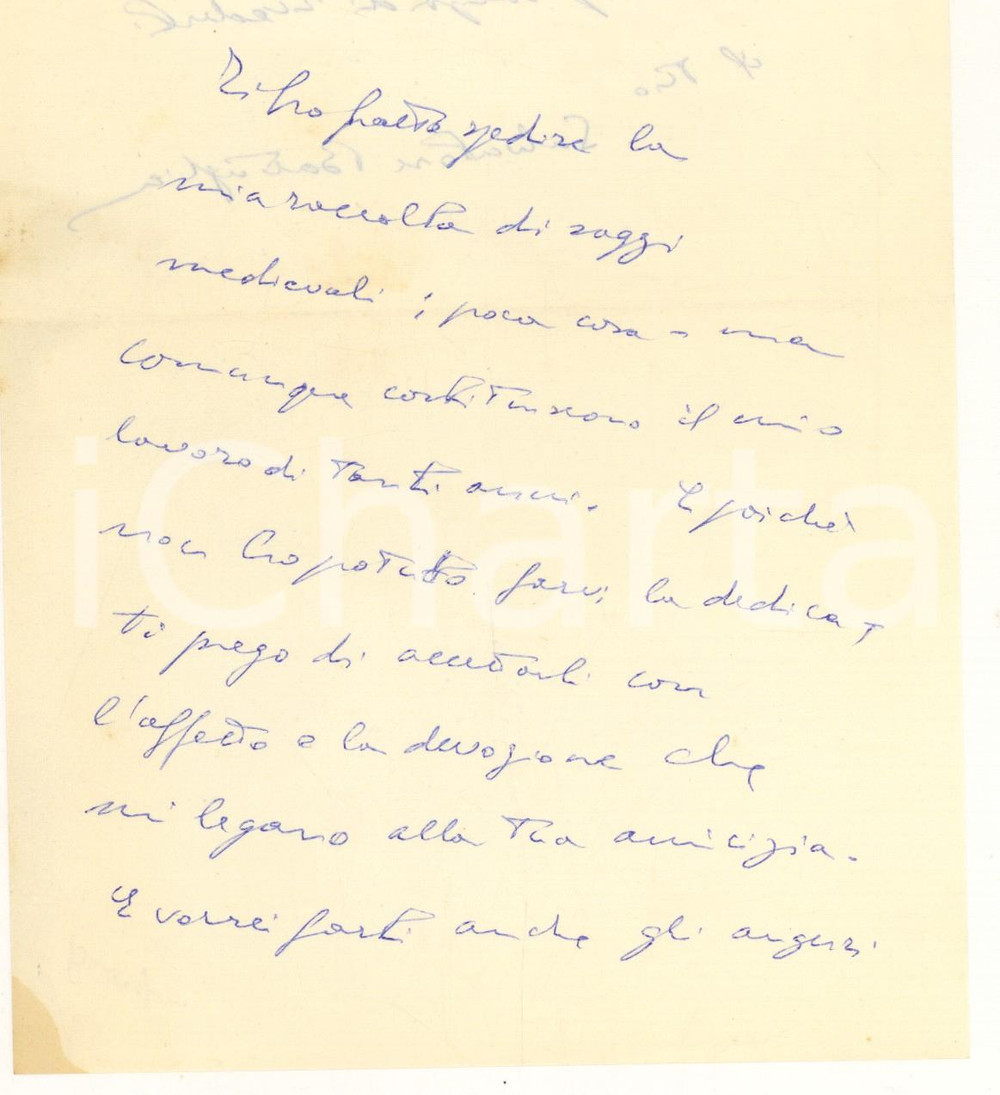 Ti ho fatto spedire la
mia raccolta di saggi
medievali; poca cosa - ma
comunque costituiscono il mio
lavoro di tanti anni. E poichè
non ho potuto farvi la dedica,
ti prego di accettarli con
l'affetto e la devozione che
mi legano alla tua amicizia.
E vorrei farti anche gli auguri
iCharta